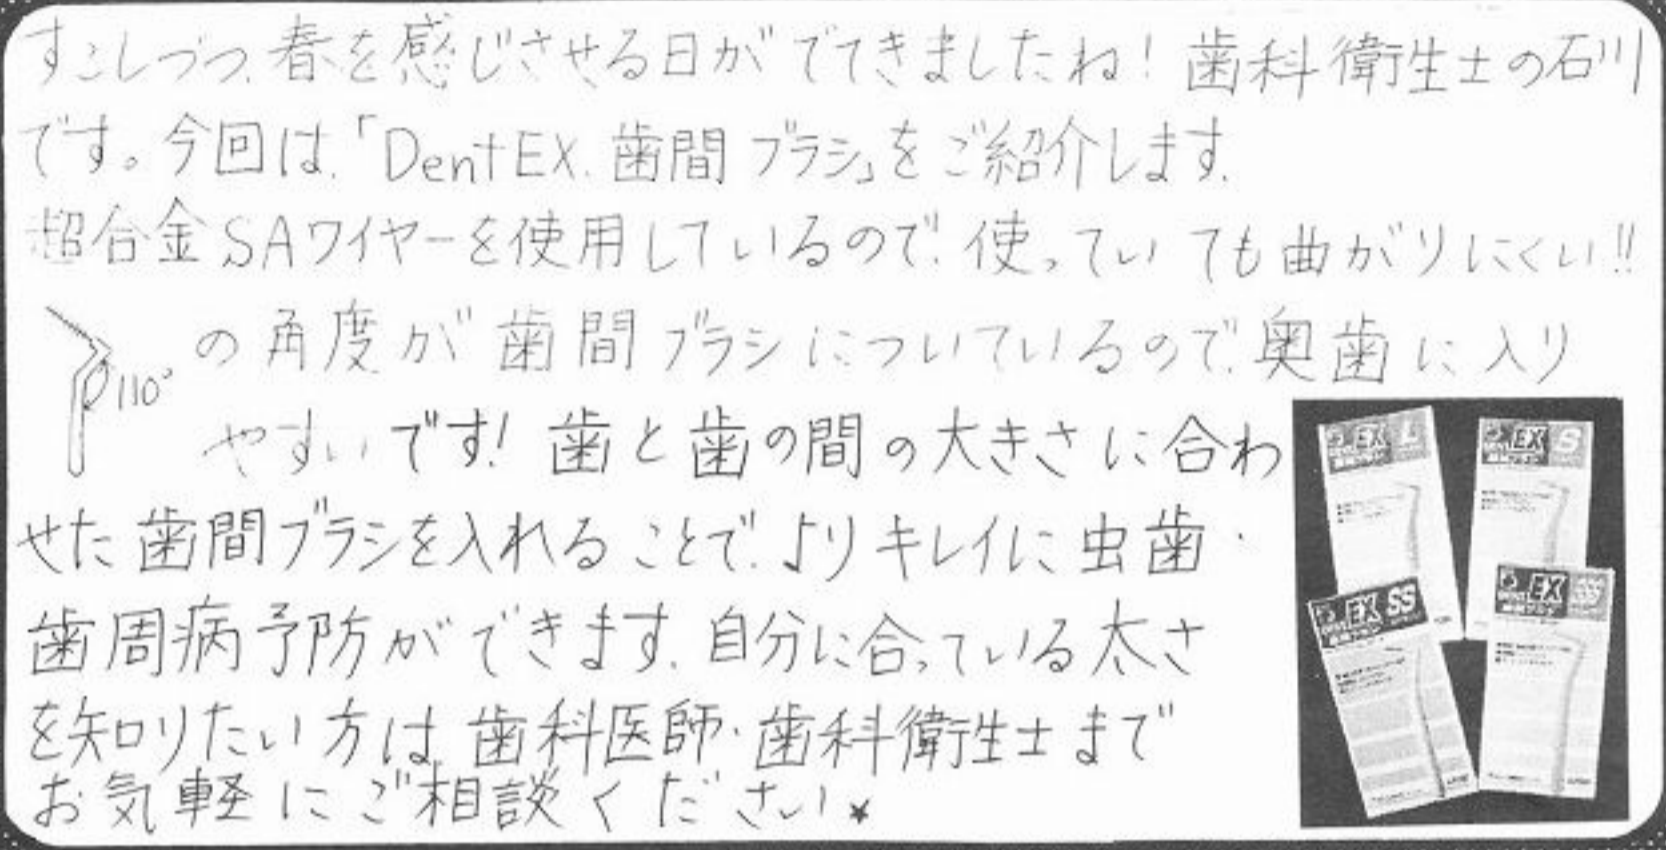 すこしづつ、春を感じさせる日がでてきましたね！歯科衛生士の石川
です。今回は、「DentEX.歯間ブラシ」をご紹介します。
超合金SAワイヤーを使用しているので、使っていても曲がりにくい!!
110°
の角度が歯間ブラシについているので、奥歯に入り
やすいです！歯と歯の間の大きさに合わ
せた歯間ブラシを入れることで、よりキレイに虫歯・
歯周病予防ができます。自分に合っている太さ
を知りたい方は歯科医師・歯科衛生士まで
お気軽にご相談ください★
EX L
EX S
EX SS
EX SSS